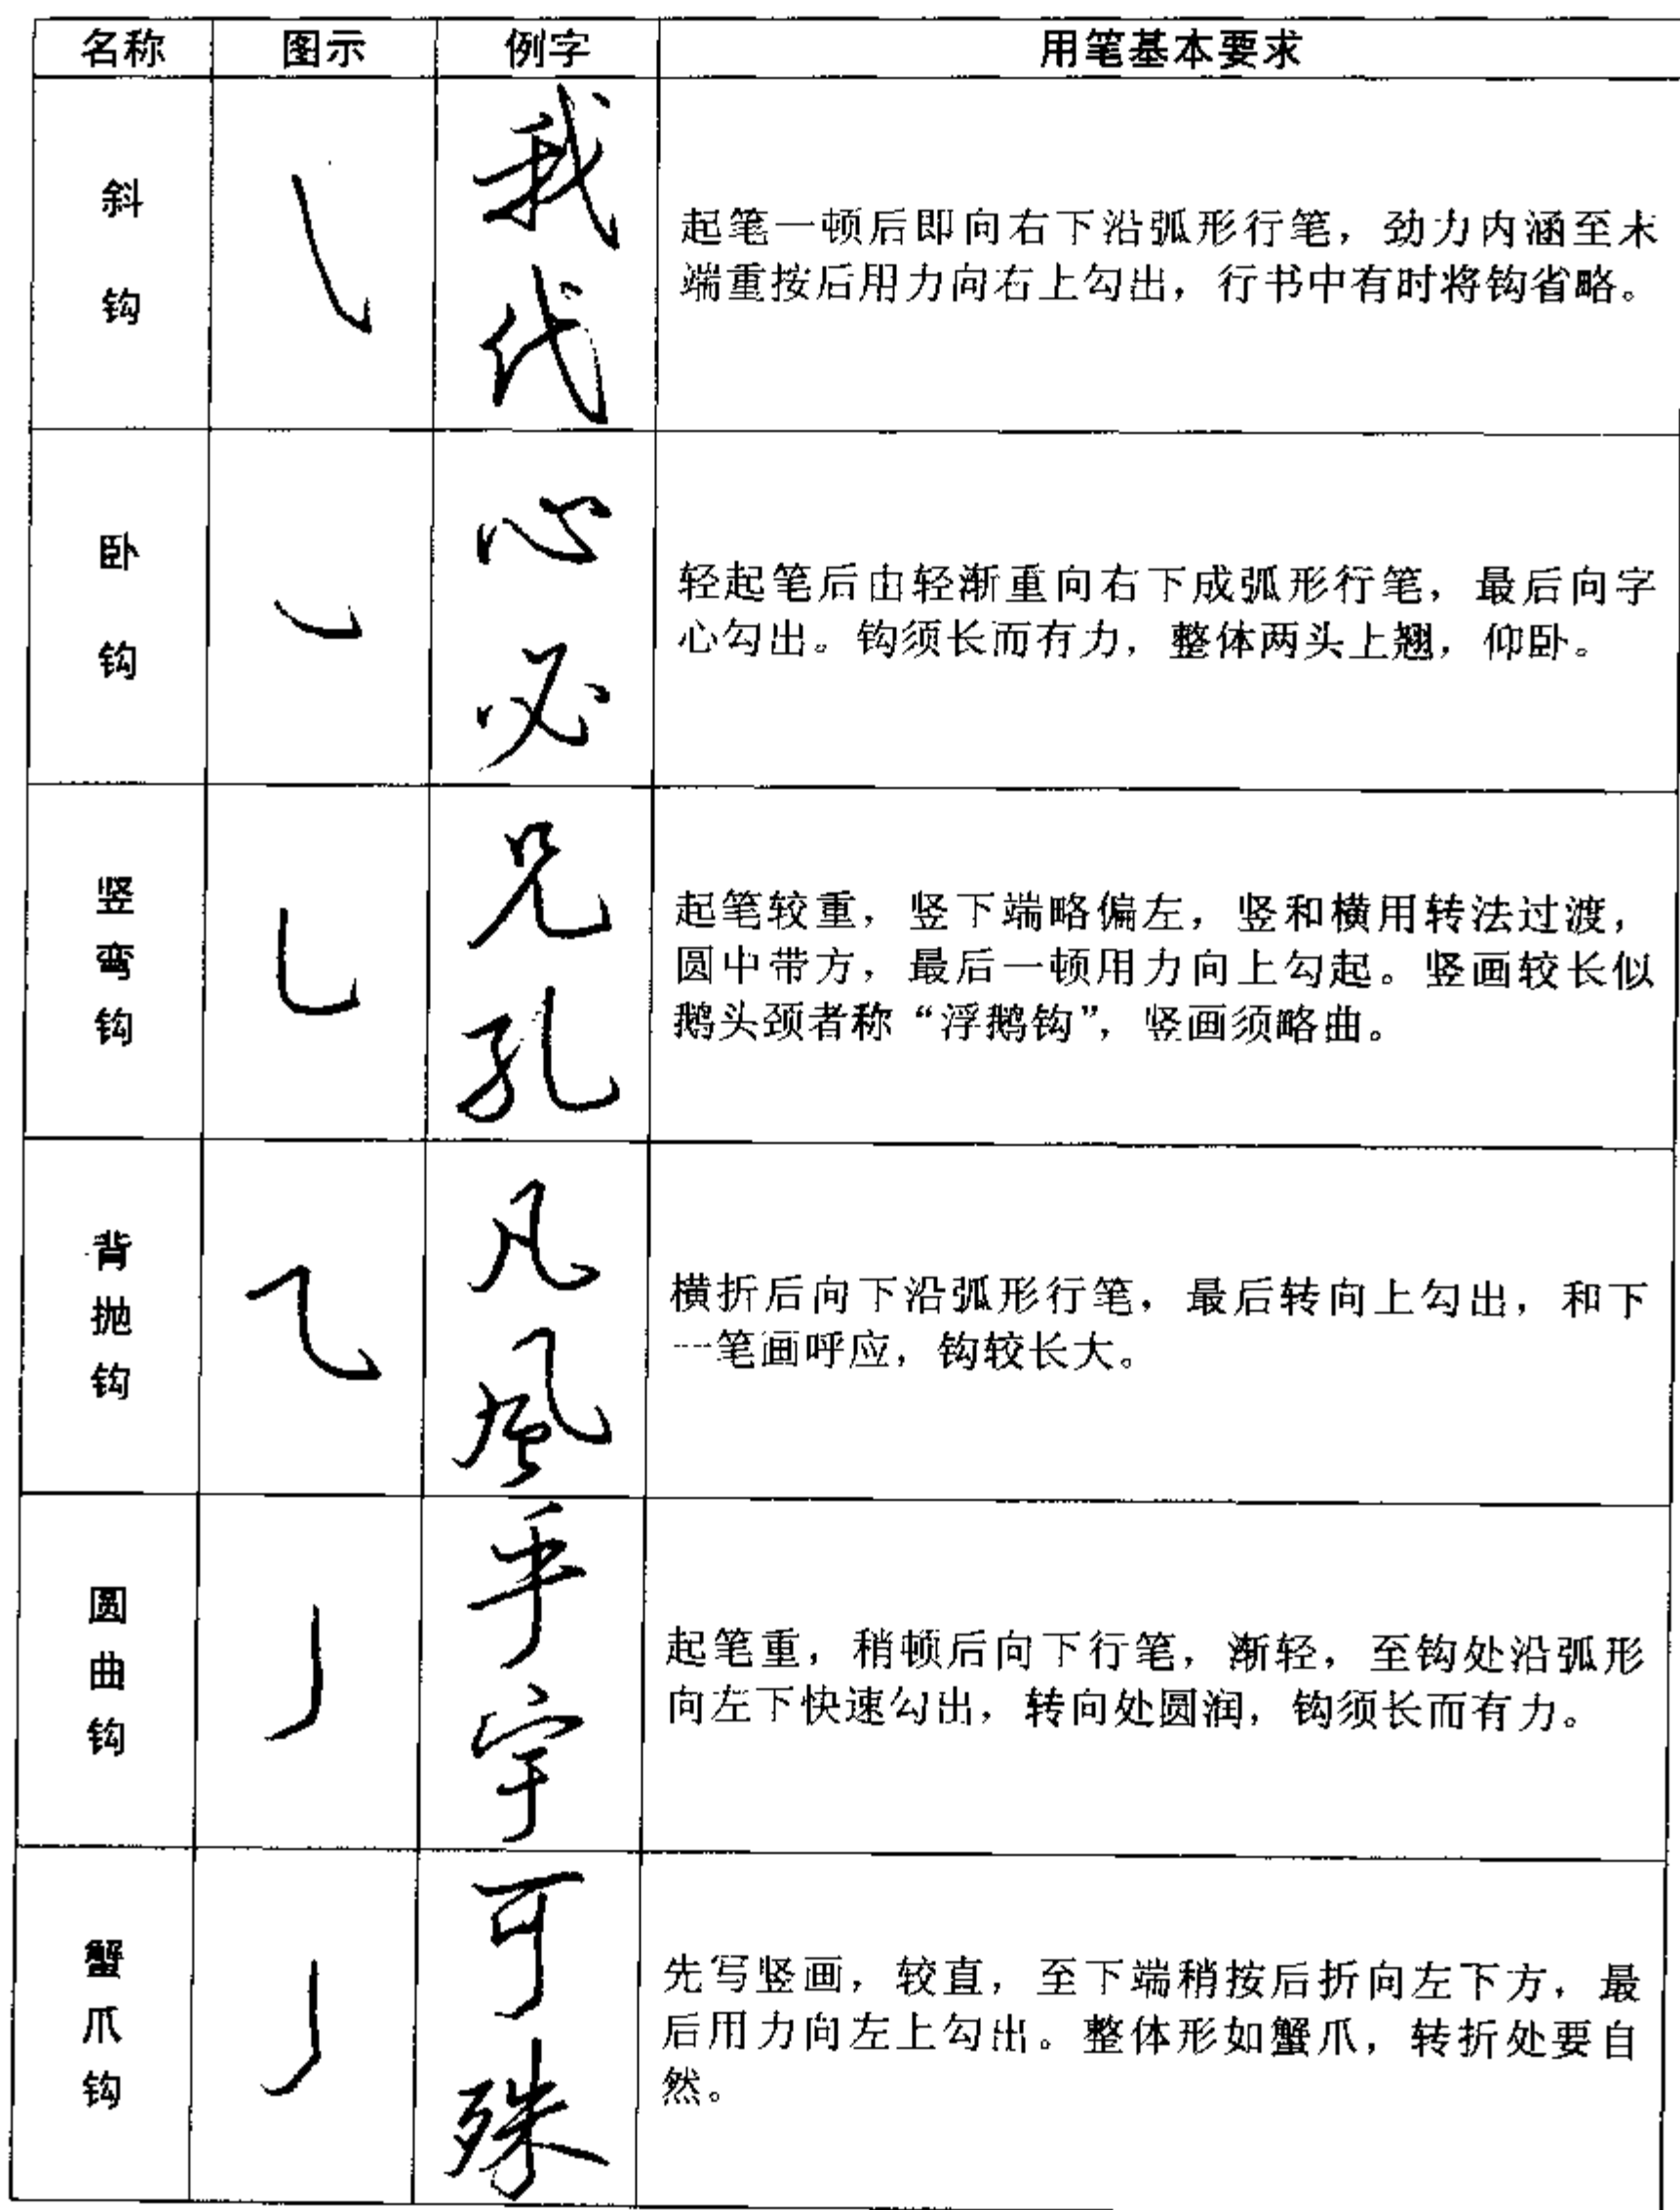 名称 图示 例字 用笔基本要求
斜
钩
我
代
起笔一顿后即向右下沿弧形行笔，劲力内涵至末
端重按后用力向右上勾出，行书中有时将钩省略。
卧
钩
心
必
轻起笔后由轻渐重向右下成弧形行笔，最后向字
心勾出。钩须长而有力，整体两头上翘，仰卧。
竖
弯
钩
兄
孔
起笔较重，竖下端略偏左，竖和横用转法过渡，
圆中带方，最后一顿用力向上勾起。竖画较长似
鹅头颈者称“浮鹅钩”，竖画须略曲。
背
抛
钩
凡
風
横折后向下沿弧形行笔，最后转向上勾出，和下
一笔画呼应，钩较长大。
圆
曲
钩
乎
宇
起笔重，稍顿后向下行笔，渐轻，至钩处沿弧形
向左下快速勾出，转向处圆润，钩须长而有力。
蟹
爪
钩
可
殊
先写竖画，较直，至下端稍按后折向左下方，最
后用力向左上勾出。整体形如蟹爪，转折处要自
然。